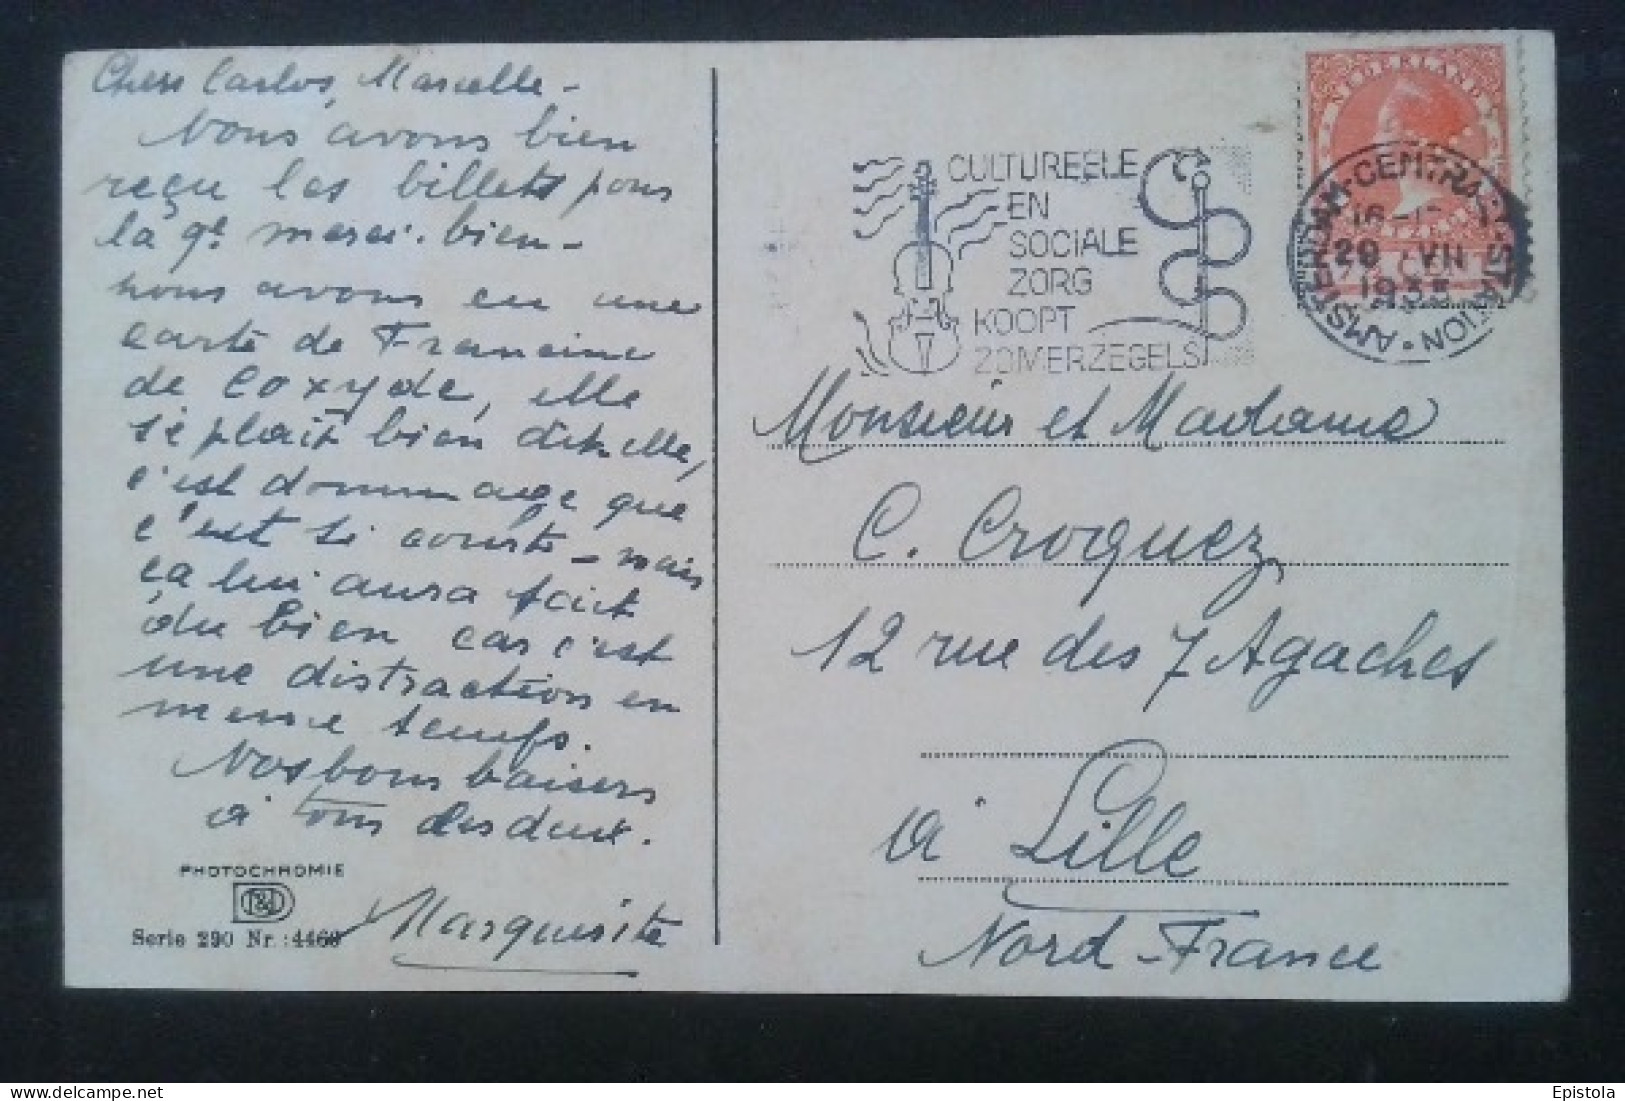 Chers Carlos, Marcelle -
Nous avons bien
reçu les billets pour
la gde merci. bien -
nous avons eu une
carte de Francine
de Coxyde, elle
se plaît bien
c'est dommage que
c'est si courte - mais
ça lui aura fait
du bien car c'est
une distraction en
meme temps.
Nos bons baisers
à tous les deux.
Marguerite
PHOTOCHROMIE
Serie 290 Nr.: 4460
CULTUREELE
EN
SOCIALE
ZORG
KOOPT
ZOMERZEGELS
NEDERLAND
AMSTERDAM-CENTRAAL STATION
20 VII
Monsieur et Madame
C. Croquez,
12 rue des 7 Agaches
à Lille
Nord - France
Epistola